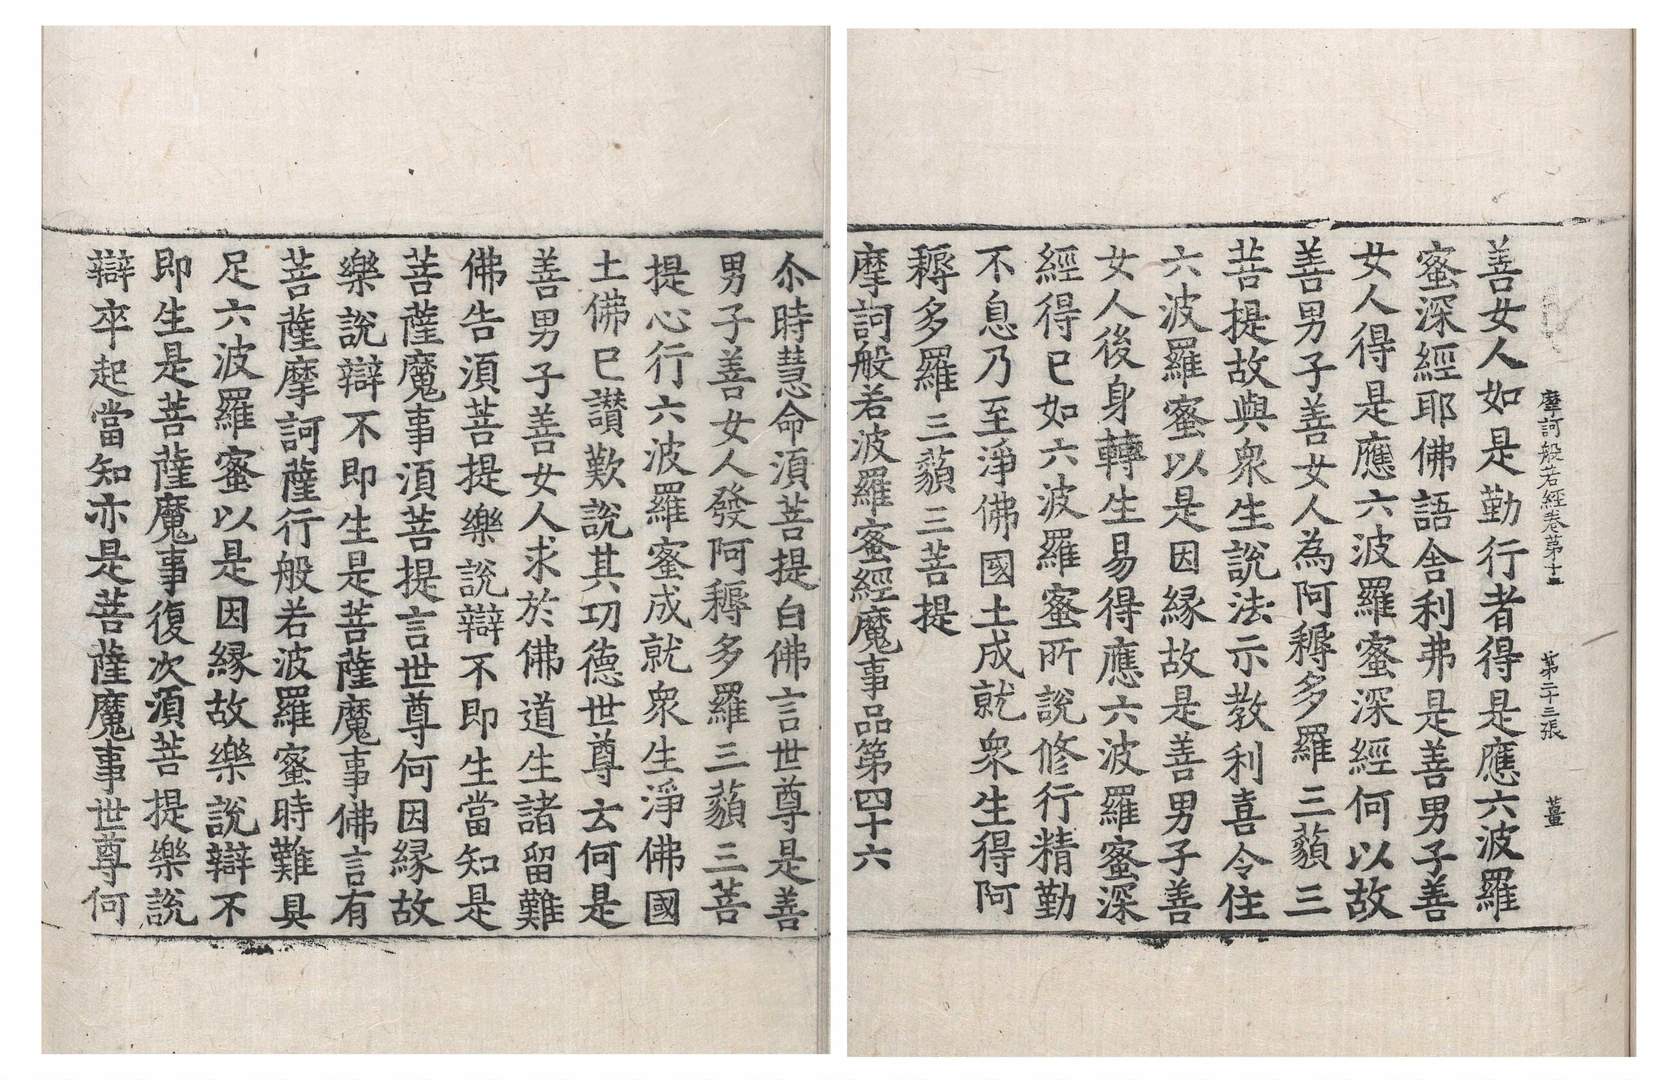 摩訶般若經卷第十三　第二十三張　薑
善女人如是勤行者得是應六波羅
蜜深經耶佛語舍利弗是善男子善
女人得是應六波羅蜜深經何以故
善男子善女人為阿耨多羅三藐三
菩提故與衆生說法示教利喜令住
六波羅蜜以是因縁故是善男子善
女人後身轉生易得應六波羅蜜深
經得已如六波羅蜜所說修行精勤
不息乃至淨佛國土成就衆生得阿
耨多羅三藐三菩提
摩訶般若波羅蜜經魔事品第四十六
尒時慧命湏菩提白佛言世尊是善
男子善女人發阿耨多羅三藐三菩
提心行六波羅蜜成就衆生淨佛國
土佛已讃歎說其功德世尊云何是
善男子善女人求於佛道生諸留難
佛告湏菩提樂說辯不即生當知是
菩薩魔事湏菩提言世尊何因縁故
樂說辯不即生是菩薩魔事佛言有
菩薩摩訶薩行般若波羅蜜時難具
足六波羅蜜以是因縁故樂說辯不
即生是菩薩魔事復次湏菩提樂說
辯卒起當知亦是菩薩魔事世尊何